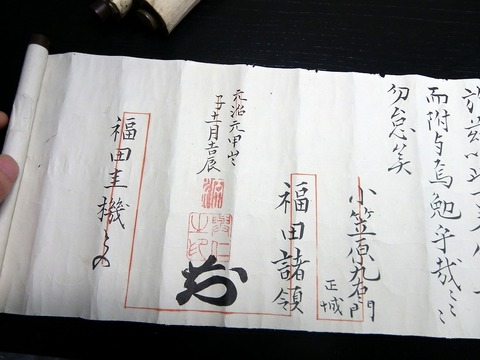 而附与焉勉乎哉
勿怠矣
小笠原九左衛門
正城
福田諸領
元治元甲
子十一月吉辰
福田圭機との